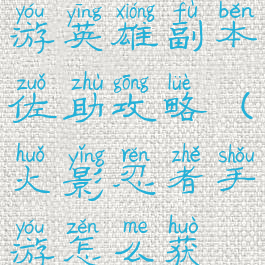 yóu yīng xióng fù běn
游英雄副本
zuǒ zhù gōng lüè
佐助攻略（
huǒ yǐng rěn zhě shǒu
火影忍者手
yóu zěn me huò
游怎么获